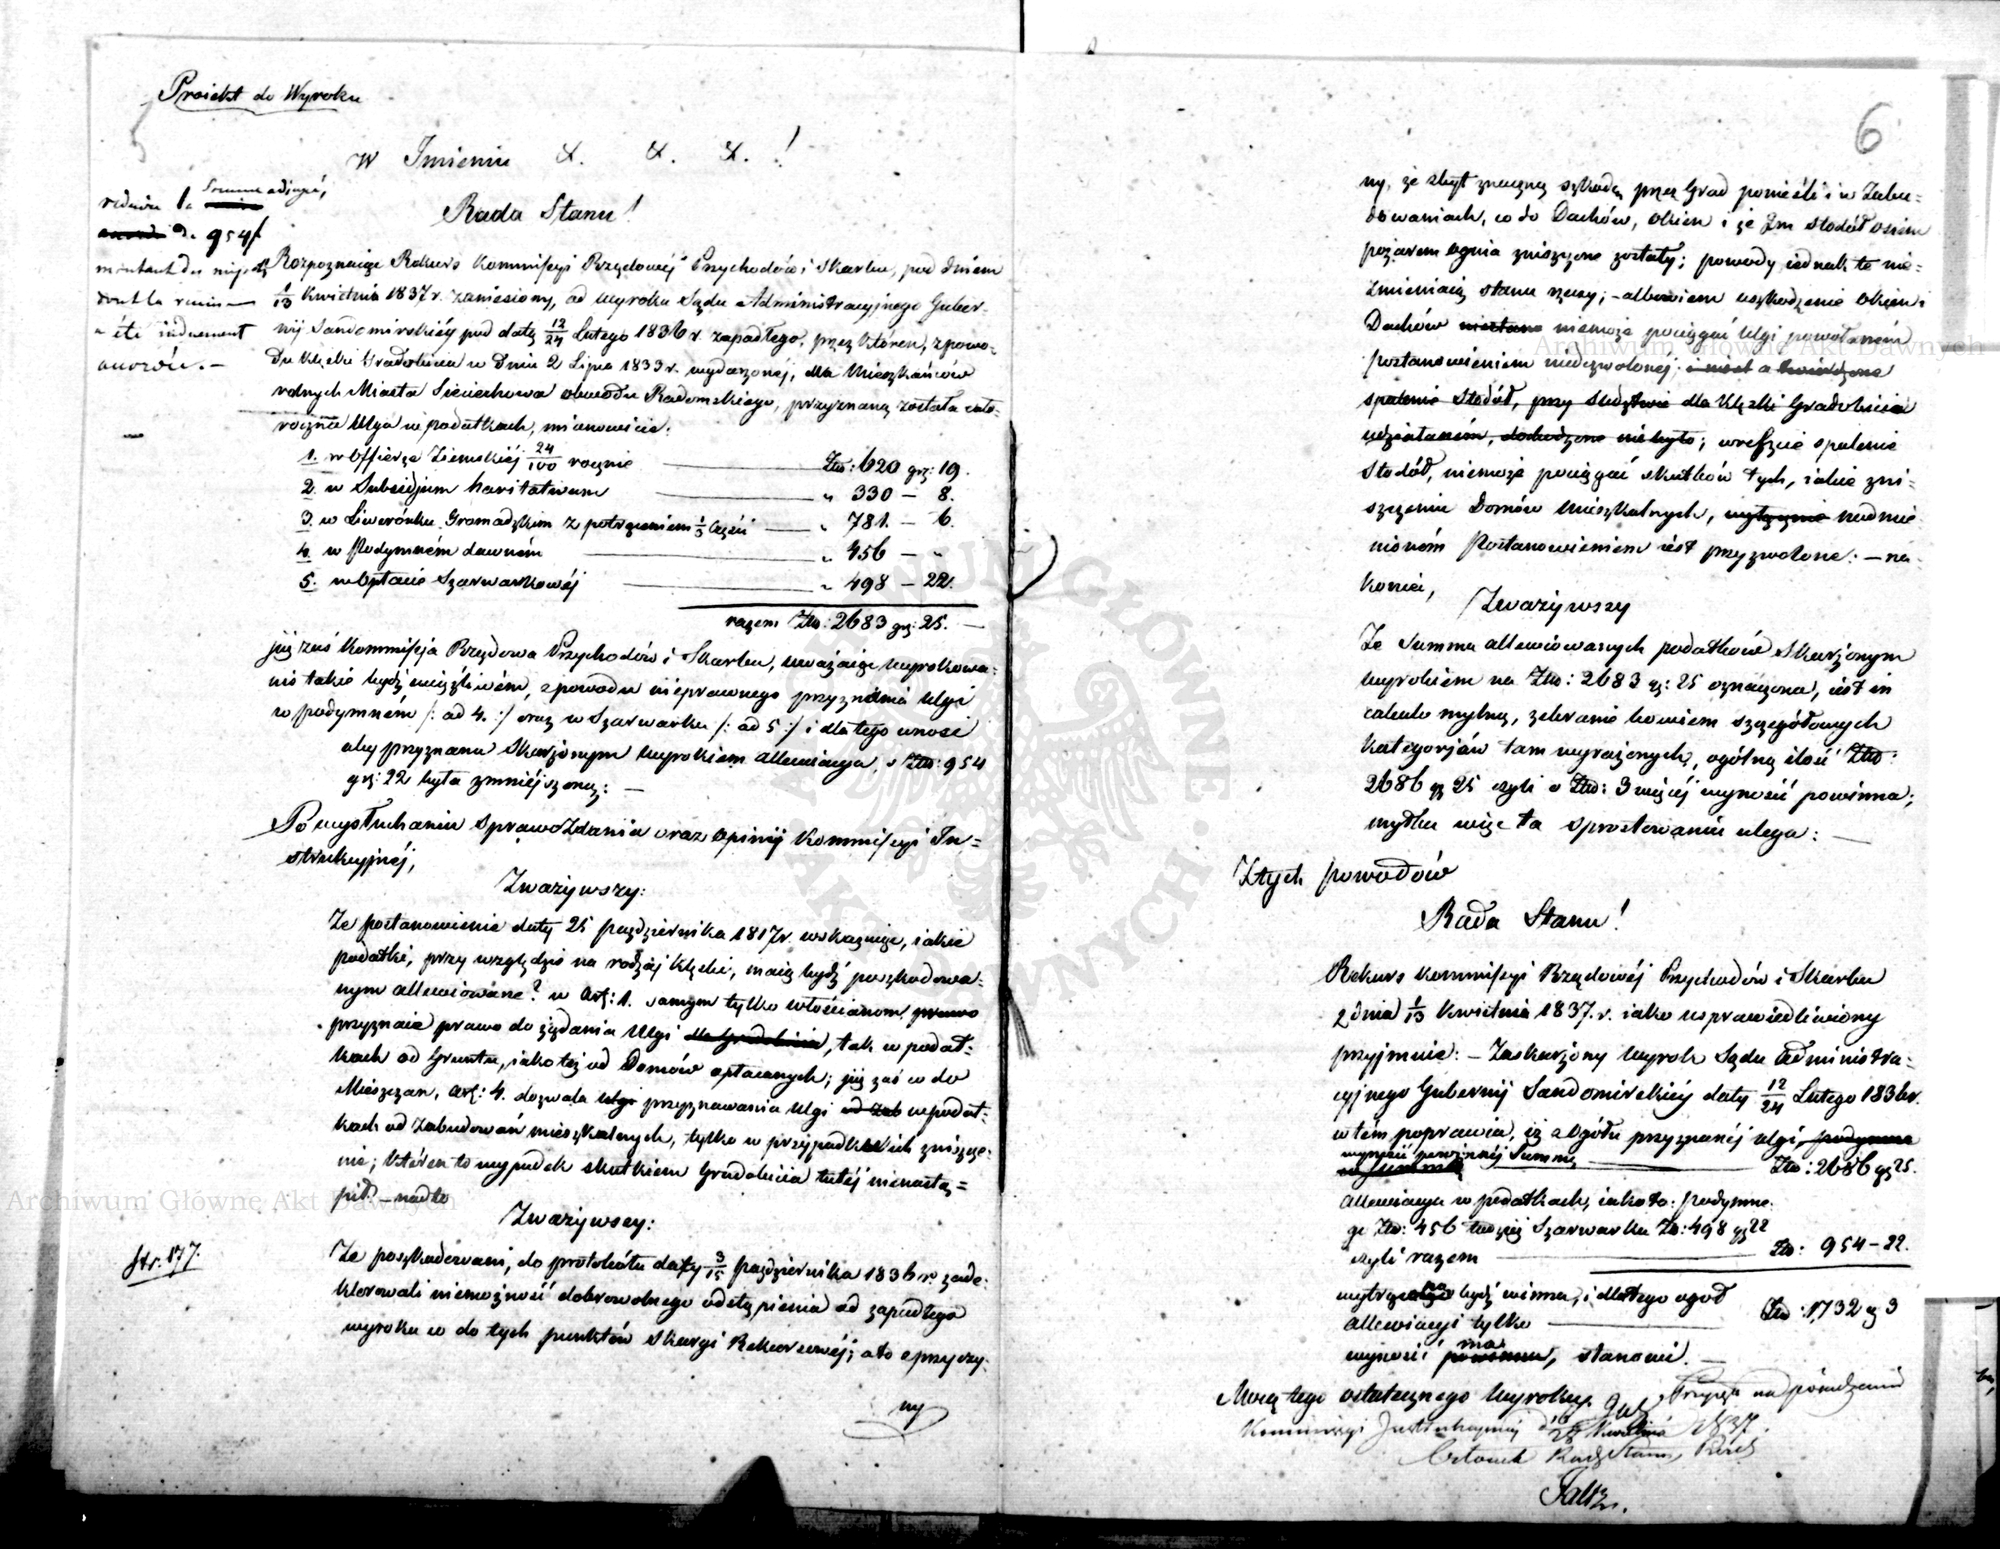 Proiekt do Wyroku
W Imieniu &. &. &. !
Rada Stanu!
Summe adiugé,
reduire la
de 954 f
montant du
dont la remise
a été indûment
accordée. —
Rozpoznaiąc Rekurs Kommissyi Rządowéj Przychodów i Skarbu, pod dniem
1/13 Kwietnia 1837 r. zaniesiony, od wyroku Sądu Administracyjnego Guber-
nij Sandomirskiéy pod datą 12/24 Lutego 1836 r. zapadłego, przez któren, z powo-
du klęski Gradobicia w dniu 2 Lipca 1833 r. wydarzonéj, dla Mieszkańców
rolnych Miasta Sieciechowa obwodu Radomskiego, przyznaną została cało-
roczna ulga w podatkach, mianowicie:
1. w Offierze Ziemskiéj 24/100 rocznie — Złto: 620 gr: 19.
2. w Subsidjum haritativum — „ 330 — 8.
3. w Liwerunku Gromadzkim z potrąceniem 1/5 części — „ 781. — 6.
4. w Podymném dawném — „ 456 — „
5. w Opłacie Szarwarkowéj — „ 498 — 22.
razem Złto: 2683 gr: 25. —
już zaś Kommissyja Rządowa Przychodów i Skarbu, uważaiąc wyrokowa-
nie takie bydź uciążliwém, z powodu nieprawnego przyznania ulgi
w podymném /: ad 4. :/ oraz w Szarwarku /: ad 5 :/ i dla tego wnosi
aby przyznana skarżonym wyrokiem allewiacya, o Złto: 954
gr: 22 była zmniéjszoną; —
Po wysłuchaniu Sprawozdania oraz opinij Kommissyi In-
strukcyjnéj,
Zważywszy:
Że postanowienie daty 25 października 1817 r. wskazuiąc, iakie
podatki, przy względzie na rodzaj klęski, maią bydź poszkodowa-
nym allewiowane? w Art: 1. samym tylko włościanom prawo
przyznaie prawo do żądania ulgi dla Gradobicia, tak w podat-
kach od Gruntu, iako też od Domów opłacanych; już zaś co do
Mieszczan, Art: 4. dozwala ulgi przyznawania ulgi od zab w podat-
kach od Zabudowań mieszkalnych, tylko w przypadkach zniszcze-
nia; któren to wypadek skutkiem Gradobicia tutéj nienastą-
pił. — nadto
Zważywszy:
Str. 177.
Że poszkodowani, do protokółu daty 3/15 października 1836 r. zade-
klarowali niemożność dobrowolnego odstąpienia od zapadłego
wyroku co do tych punktów skargi Rekursowéj; a to z przyczy-
ny
6
ny, że zbyt znaczną szkodę przez Grad ponieśli i w Zabu-
dowaniach, co do Dachów, okien i że im stodół osiem
pożarem ognia zniszczone zostały; powody iednak te nie-
zmieniaią stanu rzeczy; — albowiem uszkodzenie okien i
Dachów niemoże pociągać ulgi powołaném
postanowieniem niedozwolonéj; a twierdzone
spalenie Stodół, przy śledztwie dla klęski Gradobicia
udziałaném, dochodzone nie było; wreszcie spalenie
Stodół, niemoże pociągać skutków tych, iakie zni-
szczenie Domów mieszkalnych, wyłącznie nadmie-
nioném Postanowieniem iest przyzwolone: — na-
koniec,
Zważywszy
Że summa allewiowanych podatków skarżonym
wyrokiem na Złto: 2683 gr: 25 oznaczona, iest in
calculo mylną, zebranie bowiem szczegółowych
kategorjów tam wyrażonych, ogólną ilość Złto:
2686 gr 25 czyli o Złto: 3 więcéj wynosić powinna;
myłka więc ta sprostowaniu ulega: —
Z tych powodów
Rada Stanu!
Rekurs Kommissyi Rządowéj Przychodów i Skarbu
z dnia 1/13 Kwietnia 1837. r. iako usprawiedliwiony
przyjmuie: — Zaskarżony wyrok Sądu Administra-
cyjnego Gubernij Sandomirskiéy daty 12/24 Lutego 1836 r.
w tém poprawia, iż z ogółu przyznanéj ulgi, podymne
wynosić powinnéj Summy — Złto: 2686 gr 25.
allewiacya w podatkach, iako to: podymne-
go Złto: 456 tudzież Szarwarku Zł: 498 gr 22
czyli razem — Złto: 954 — 22.
wytrąconą bydź winna, i dlatego ogół
allewiacyi tylko — Złto: 1,732 g 3
wynosić powinna, ma stanowi. —
Mocą tego ostatecznego Wyroku.
Przyięto na posiedzeniu
Kommissyi Instrukcyjnéj d. 16/28 Kwietnia 1837.
Członek Rady Stanu,
Archiwum Główne Akt Dawnych
Archiwum Główne Akt Dawnych
ARCHIWUM GŁÓWNE · AKT DAWNYCH ·